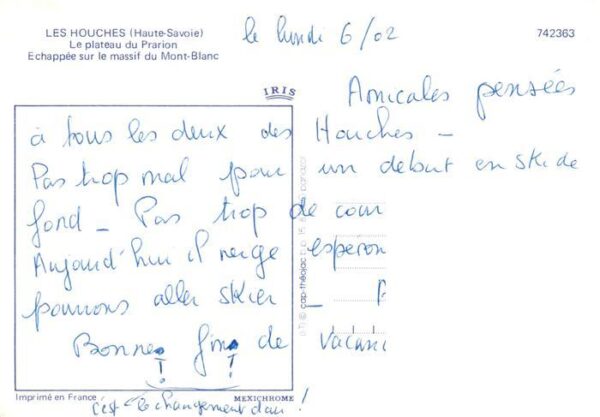 LES HOUCHES (Haute-Savoie)
Le plateau du Prarion
Echappée sur le massif du Mont-Blanc
742363
le lundi 6/02
IRIS
Amicales pensées
à tous les deux des Houches –
Pas trop mal pour un debut en ski de
fond – Pas trop de cour
Aujourd'hui il neige esperon
pouvons aller skier –
Bonnes fins de vacanc
! !
c'est le changement d'air !
Imprimé en France
MEXICHROME
© cap-théojac